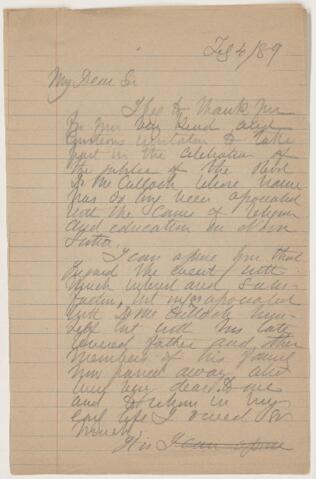 Feb 4/89
My Dear Sir
I beg to thank you
for your very kind and
courteous invitation to take
part in the celebration of
the jubilee of the Revd
Dr McCulloch whose name
has so long been associated
with the cause of religion
and education in Nova
Scotia.
I can assure you that
I regard the event with
much interest and satis-
faction, associated
with Dr McCulloch him-
self but with his late
revered father and other
members of his family
now passed away and
very very dear to me
and to whom in my
early life I owed so
much.
It is I can assure